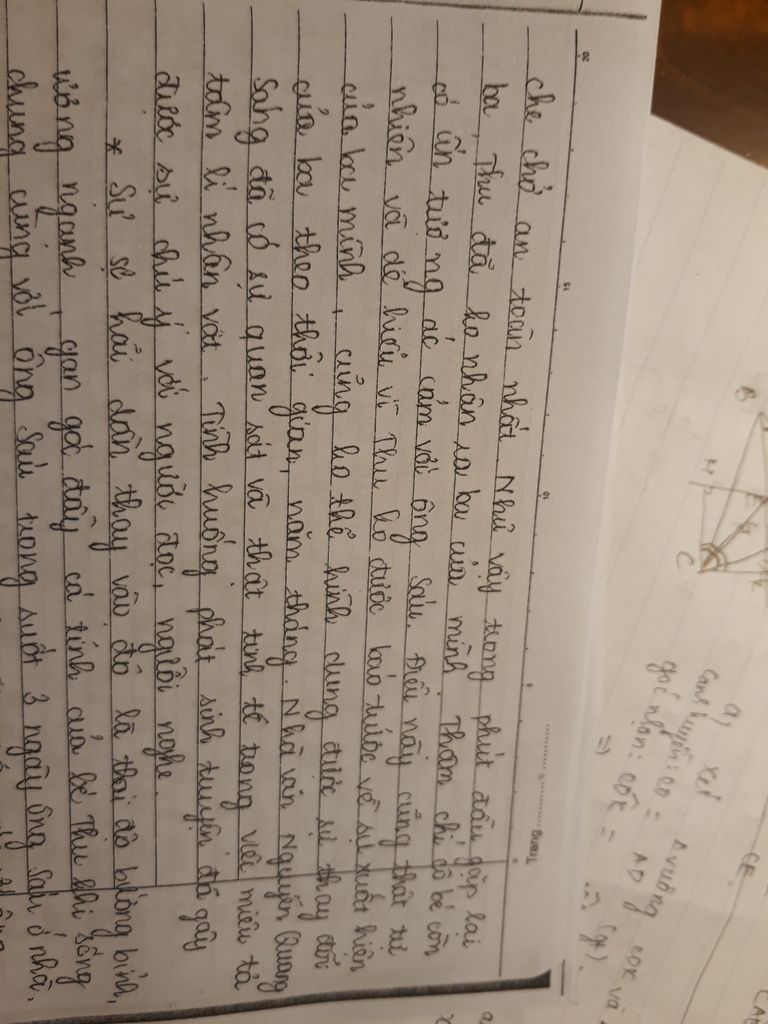 Trang
che chở an toàn nhất. Như vậy trong phút đầu gặp lại
ba, Thu đã ko nhận ra ba của mình. Thậm chí cô bé còn
có ấn tượng ác cảm với ông Sáu. Điều này cũng thật tự
nhiên và dễ hiểu vì Thu ko được báo trước về sự xuất hiện
của ba mình, cũng ko thể hình dung được sự thay đổi
của ba theo thời gian, năm tháng. Nhà văn Nguyễn Quang
Sáng đã có sự quan sát và thật tinh tế trong việc miêu tả
tâm lí nhân vật. Tình huống phát sinh truyện đã gây
được sự chú ý với người đọc, người nghe.
* Sự sợ hãi dần thay vào đó là thái độ bướng bỉnh,
ương ngạnh, gan góc đầy cá tính của bé Thu khi sống
chung cùng với ông Sáu trong suốt 3 ngày ông Sáu ở nhà.
a, Xét Δ vuông COK và
Cạnh huyền: CO = AO (gt).
góc nhọn: COK =
=>
B
H
E
C
K